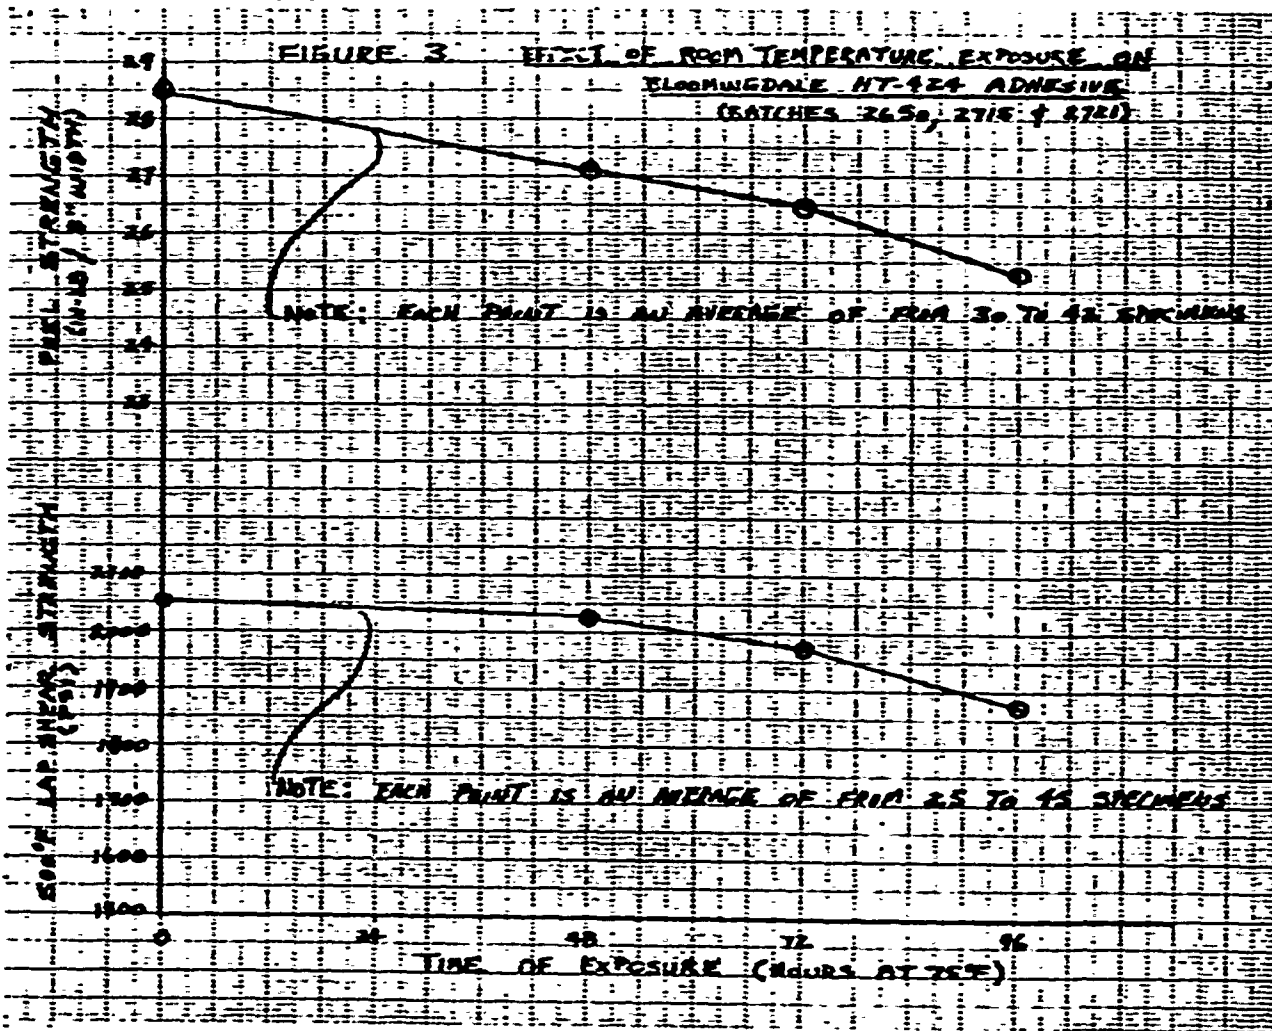 FIGURE 3 EFFECT OF ROOM TEMPERATURE EXPOSURE ON
BLOOMINGDALE HT-424 ADHESIVE
(BATCHES 2650, 2715 & 2721)
PEEL STRENGTH
(IN-LB / 3" WIDTH)
29
28
27
26
25
24
23
NOTE: EACH POINT IS AN AVERAGE OF FROM 30 TO 42 SPECIMENS
500°F LAP SHEAR STRENGTH
(PSI)
2100
2000
1900
1800
1700
1600
1500
NOTE: EACH POINT IS AN AVERAGE OF FROM 25 TO 45 SPECIMENS
0 24 48 72 96
TIME OF EXPOSURE (HOURS AT 75°F)